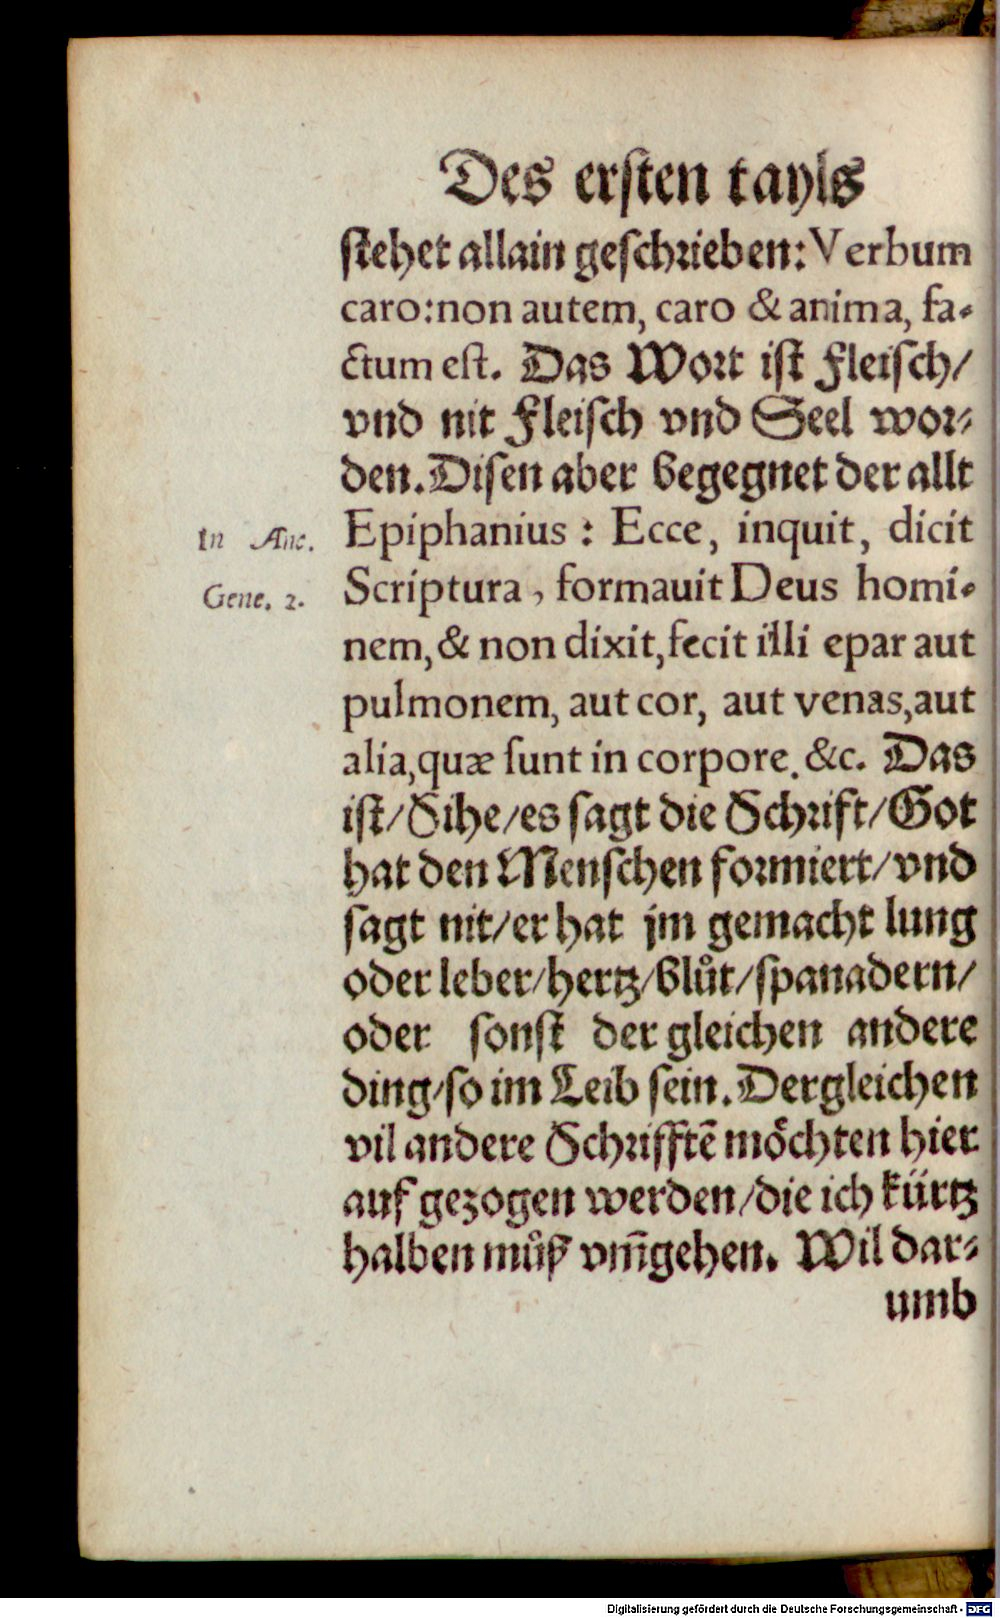 Des ersten tayls
stehet allain geschrieben: Verbum
caro: non autem, caro & anima, fa-
ctum est. Das Wort ist Fleisch/
vnd nit Fleisch vnd Seel wor-
den. Disen aber begegnet der allt
In Anc. Epiphanius: Ecce, inquit, dicit
Gene. 2. Scriptura, formauit Deus homi-
nem, & non dixit, fecit illi epar aut
pulmonem, aut cor, aut venas, aut
alia, quæ sunt in corpore. &c. Das
ist/ Sihe/ es sagt die Schrift/ Got
hat den Menschen formiert/ vnd
sagt nit/ er hat jm gemacht lung
oder leber/ hertz/ blůt/ spanadern/
oder sonst der gleichen andere
ding/ so im Leib sein. Dergleichen
vil andere Schrifftẽ möchten hier
auf gezogen werden/ die ich kürtz
halben můß vm̃gehen. Wil dar-
umb
Digitalisierung gefördert durch die Deutsche Forschungsgemeinschaft - DFG